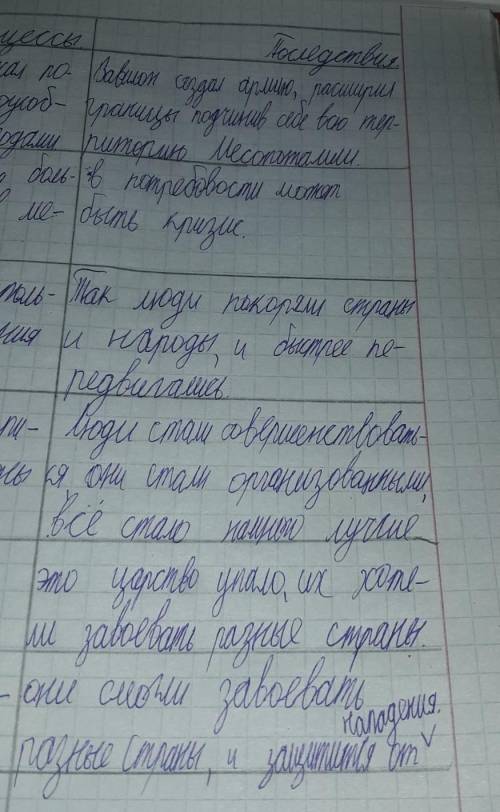 цессы Последствия
кал по- Вавилон создал армию, расширил
оусоб- границы подчинив себе всю тер-
водами риторию Месопотамии.
боль- в потребовости может
ме- быть кризис.
толь- Так люди покоряли страны
ния и народы, и быстрее пе-
редвигались.
пи- люди стали совершенствовать-
ны ся они стали организованными,
всё стало намного лучше
это царство упало, их хоте-
ли завоевать разные страны.
- они смогли завоевать
нападения.
разные страны, и защитится от